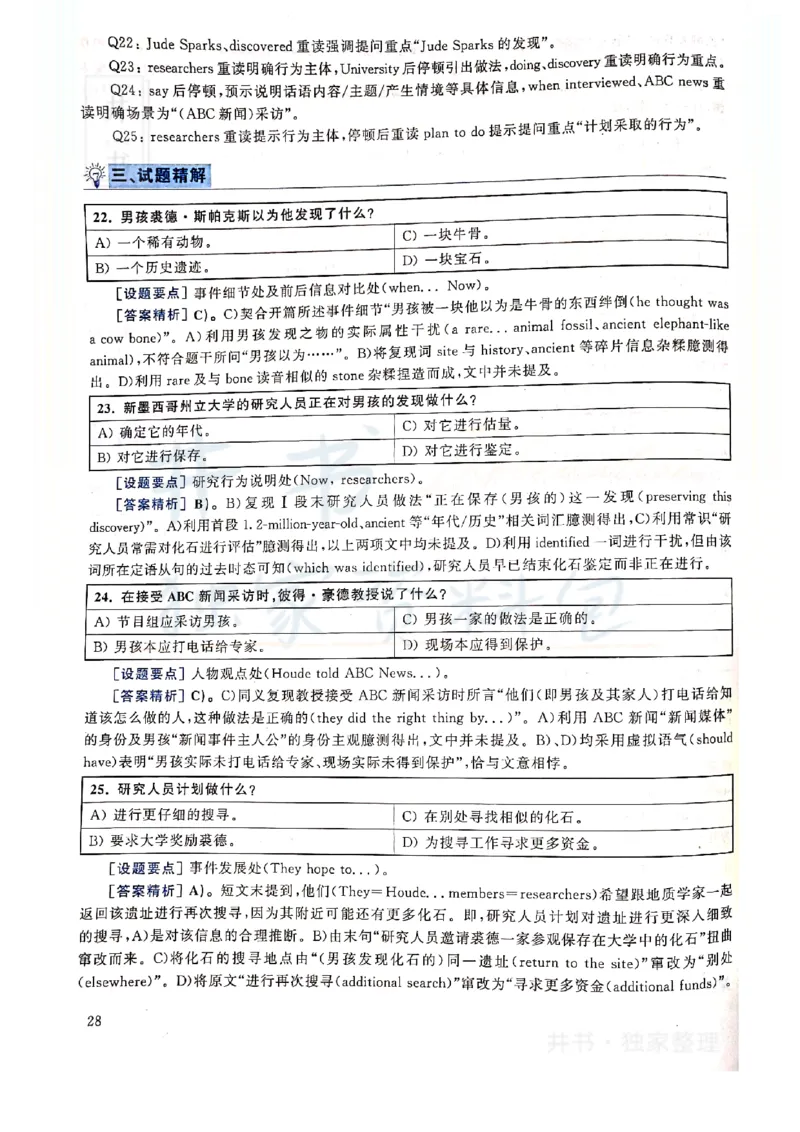 Q22：Jude Sparks、discovered 重读强调提问重点“Jude Sparks 的发现”。
Q23：researchers 重读明确行为主体，University 后停顿引出做法，doing、discovery 重读明确行为重点。
Q24：say 后停顿，预示说明话语内容/主题/产生情境等具体信息，when interviewed、ABC news 重
读明确场景为“(ABC 新闻)采访”。
Q25：researchers 重读提示行为主体，停顿后重读 plan to do 提示提问重点“计划采取的行为”。
三、试题精解
22. 男孩裘德·斯帕克斯以为他发现了什么？
A) 一个稀有动物。 C) 一块牛骨。
B) 一个历史遗迹。 D) 一块宝石。
[设题要点] 事件细节处及前后信息对比处(when... Now)。
[答案精析] C)。C)契合开篇所述事件细节“男孩被一块他以为是牛骨的东西绊倒(he thought was
a cow bone)”。A)利用男孩发现之物的实际属性干扰(a rare... animal fossil、ancient elephant-like
animal)，不符合题干所问“男孩以为……”。B)将复现词 site 与 history、ancient 等碎片信息杂糅臆测得
出。D)利用 rare 及与 bone 读音相似的 stone 杂糅捏造而成，文中并未提及。
23. 新墨西哥州立大学的研究人员正在对男孩的发现做什么？
A) 确定它的年代。 C) 对它进行估量。
B) 对它进行保存。 D) 对它进行鉴定。
[设题要点] 研究行为说明处(Now, researchers)。
[答案精析] B)。B)复现Ⅰ段末研究人员做法“正在保存(男孩的)这一发现(preserving this
discovery)”。A)利用首段 1.2-million-year-old、ancient 等“年代/历史”相关词汇臆测得出，C)利用常识“研
究人员常需对化石进行评估”臆测得出，以上两项文中均未提及。D)利用 identified 一词进行干扰，但由该
词所在定语从句的过去时态可知(which was identified)，研究人员早已结束化石鉴定而非正在进行。
24. 在接受 ABC 新闻采访时，彼得·豪德教授说了什么？
A) 节目组应采访男孩。 C) 男孩一家的做法是正确的。
B) 男孩本应打电话给专家。 D) 现场本应得到保护。
[设题要点] 人物观点处(Houde told ABC News...)。
[答案精析] C)。C)同义复现教授接受 ABC 新闻采访时所言“他们(即男孩及其家人)打电话给知
道该怎么做的人，这种做法是正确的(they did the right thing by...)”。A)利用 ABC 新闻“新闻媒体”
的身份及男孩“新闻事件主人公”的身份主观臆测得出，文中并未提及。B)、D)均采用虚拟语气(should
have)表明“男孩实际未打电话给专家、现场实际未得到保护”，恰与文意相悖。
25. 研究人员计划做什么？
A) 进行更仔细的搜寻。 C) 在别处寻找相似的化石。
B) 要求大学奖励裘德。 D) 为搜寻工作寻求更多资金。
[设题要点] 事件发展处(They hope to...)。
[答案精析] A)。短文末提到，他们(They=Houde... members=researchers)希望跟地质学家一起
返回该遗址进行再次搜寻，因为其附近可能还有更多化石。即，研究人员计划对遗址进行更深入细致
的搜寻，A)是对该信息的合理推断。B)由末句“研究人员邀请裘德一家参观保存在大学中的化石”扭曲
窜改而来。C)将化石的搜寻地点由“(男孩发现化石的)同一遗址(return to the site)”窜改为“别处
(elsewhere)”。D)将原文“进行再次搜寻(additional search)”窜改为“寻求更多资金(additional funds)”。
28
井书·独家整理
井书
独家资料包